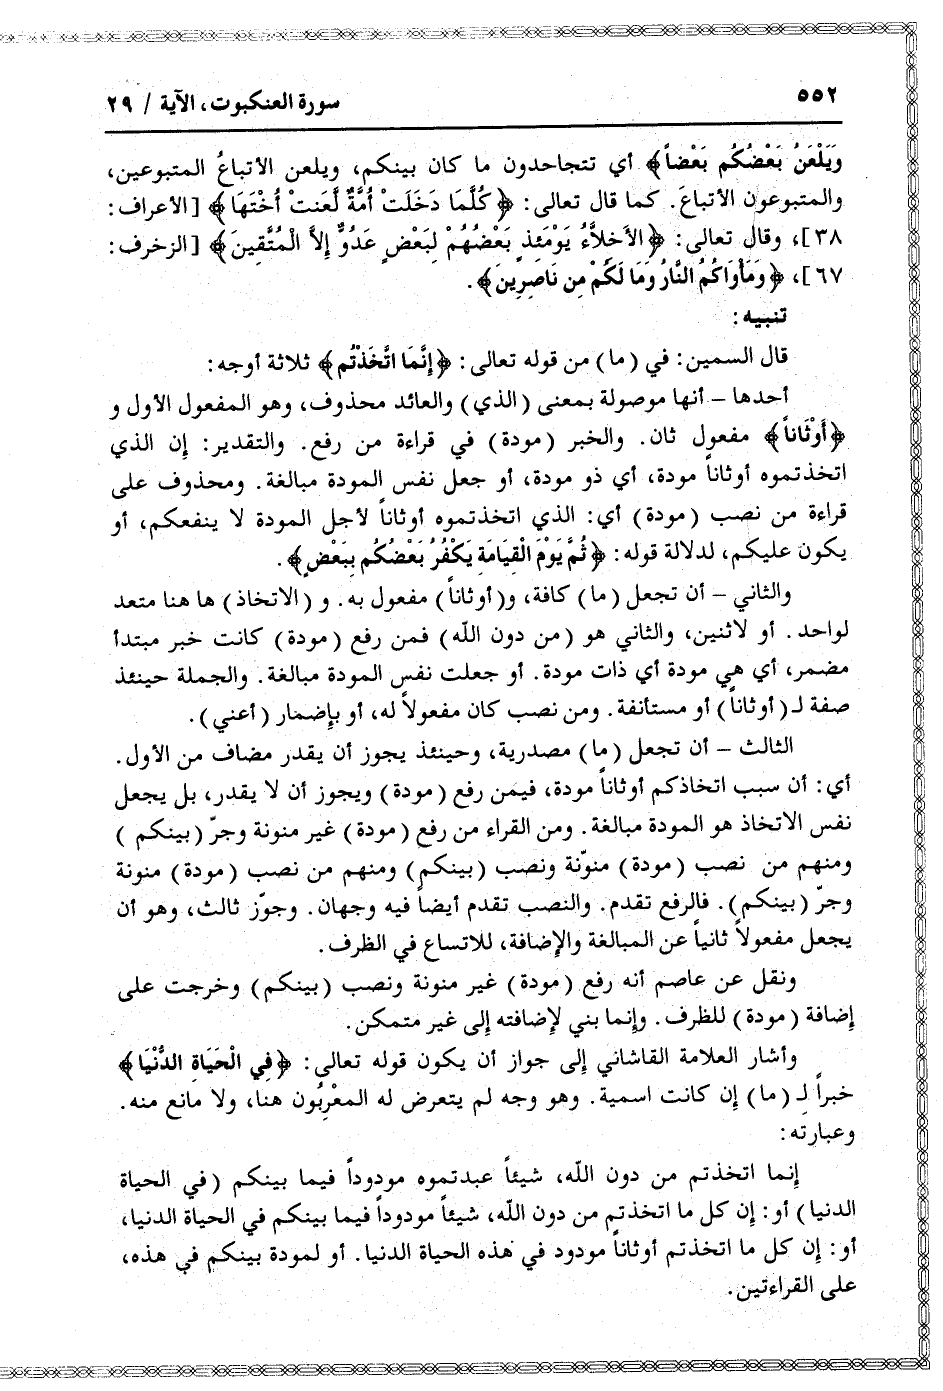 ٥٥٢
سورة العنكبوت، الآية / ٢٩
وَيَلْعَنُ بَعْضُكُم بَعْضاً﴾ أي تتجاحدون ما كان بينكم، ويلعن الأتباعُ المتبوعين،
والمتبوعون الأتباعَ. كما قال تعالى: ﴿كُلَّمَا دَخَلَتْ أُمَّةٌ لَّعَنتْ أُخْتَهَا﴾ [الأعراف:
٣٨]، وقال تعالى: ﴿الأَخِلاَّءُ يَوْمَئِذٍ بَعْضُهُمْ لِبَعْضٍ عَدُوٌّ إِلاَّ الْمُتَّقِينَ﴾ [الزخرف:
٦٧]، ﴿وَمَأْوَاكُمُ النَّارُ وَمَا لَكُمْ مِن نَاصِرِينَ﴾.
تنبيه:
قال السمين: في (ما) من قوله تعالى: ﴿إِنَّمَا اتَّخَذْتُم﴾ ثلاثة أوجه:
أحدها – أنها موصولة بمعنى (الذي) والعائد محذوف، وهو المفعول الأول و
﴿أَوْثَاناً﴾ مفعول ثان. والخبر (مودة) في قراءة من رفع. والتقدير: إن الذي
اتخذتموه أوثاناً مودة، أي ذو مودة، أو جعل نفس المودة مبالغة. ومحذوف على
قراءة من نصب (مودة) أي: الذي اتخذتموه أوثاناً لأجل المودة لا ينفعكم، أو
يكون عليكم، لدلالة قوله: ﴿ثُمَّ يَوْمَ الْقِيَامَةِ يَكْفُرُ بَعْضُكُم بِبَعْضٍ﴾.
والثاني – أن تجعل (ما) كافة، و(أوثاناً) مفعول به. و (الاتخاذ) ها هنا متعد
لواحد. أو لاثنين، والثاني هو (من دون اللّه) فمن رفع (مودة) كانت خبر مبتدأ
مضمر، أي هي مودة أي ذات مودة. أو جعلت نفس المودة مبالغة. والجملة حينئذ
صفة لـ (أوثاناً) أو مستأنفة. ومن نصب كان مفعولاً له، أو بإضمار (أعني).
الثالث – أن تجعل (ما) مصدرية، وحينئذ يجوز أن يقدر مضاف من الأول.
أي: أن سبب اتخاذكم أوثاناً مودة، فيمن رفع (مودة) ويجوز أن لا يقدر، بل يجعل
نفس الاتخاذ هو المودة مبالغة. ومن القراء من رفع (مودة) غير منونة وجرّ (بينكم )
ومنهم من نصب (مودة) منوّنة ونصب (بينكم) ومنهم من نصب (مودة) منونة
وجرّ (بينكم). فالرفع تقدم. والنصب تقدم أيضاً فيه وجهان. وجوّز ثالث، وهو أن
يجعل مفعولاً ثانياً عن المبالغة والإضافة، للاتساع في الظرف.
ونقل عن عاصم أنه رفع (مودة) غير منونة ونصب (بينكم) وخرجت على
إضافة (مودة) للظرف. وإنما بني لإضافته إلى غير متمكن.
وأشار العلامة القاشاني إلى جواز أن يكون قوله تعالى: ﴿فِي الْحَيَاةِ الدُّنْيَا﴾
خبراً لِـ (ما) إن كانت اسمية. وهو وجه لم يتعرض له المعْرِبُون هنا، ولا مانع منه.
وعبارته:
إنما اتخذتم من دون اللّه، شيئاً عبدتموه مودوداً فيما بينكم (في الحياة
الدنيا) أو: إن كل ما اتخذتم من دون اللّه، شيئاً مودوداً فيما بينكم في الحياة الدنيا،
أو: إن كل ما اتخذتم أوثاناً مودود في هذه الحياة الدنيا. أو لمودة بينكم في هذه،
على القراءتين.